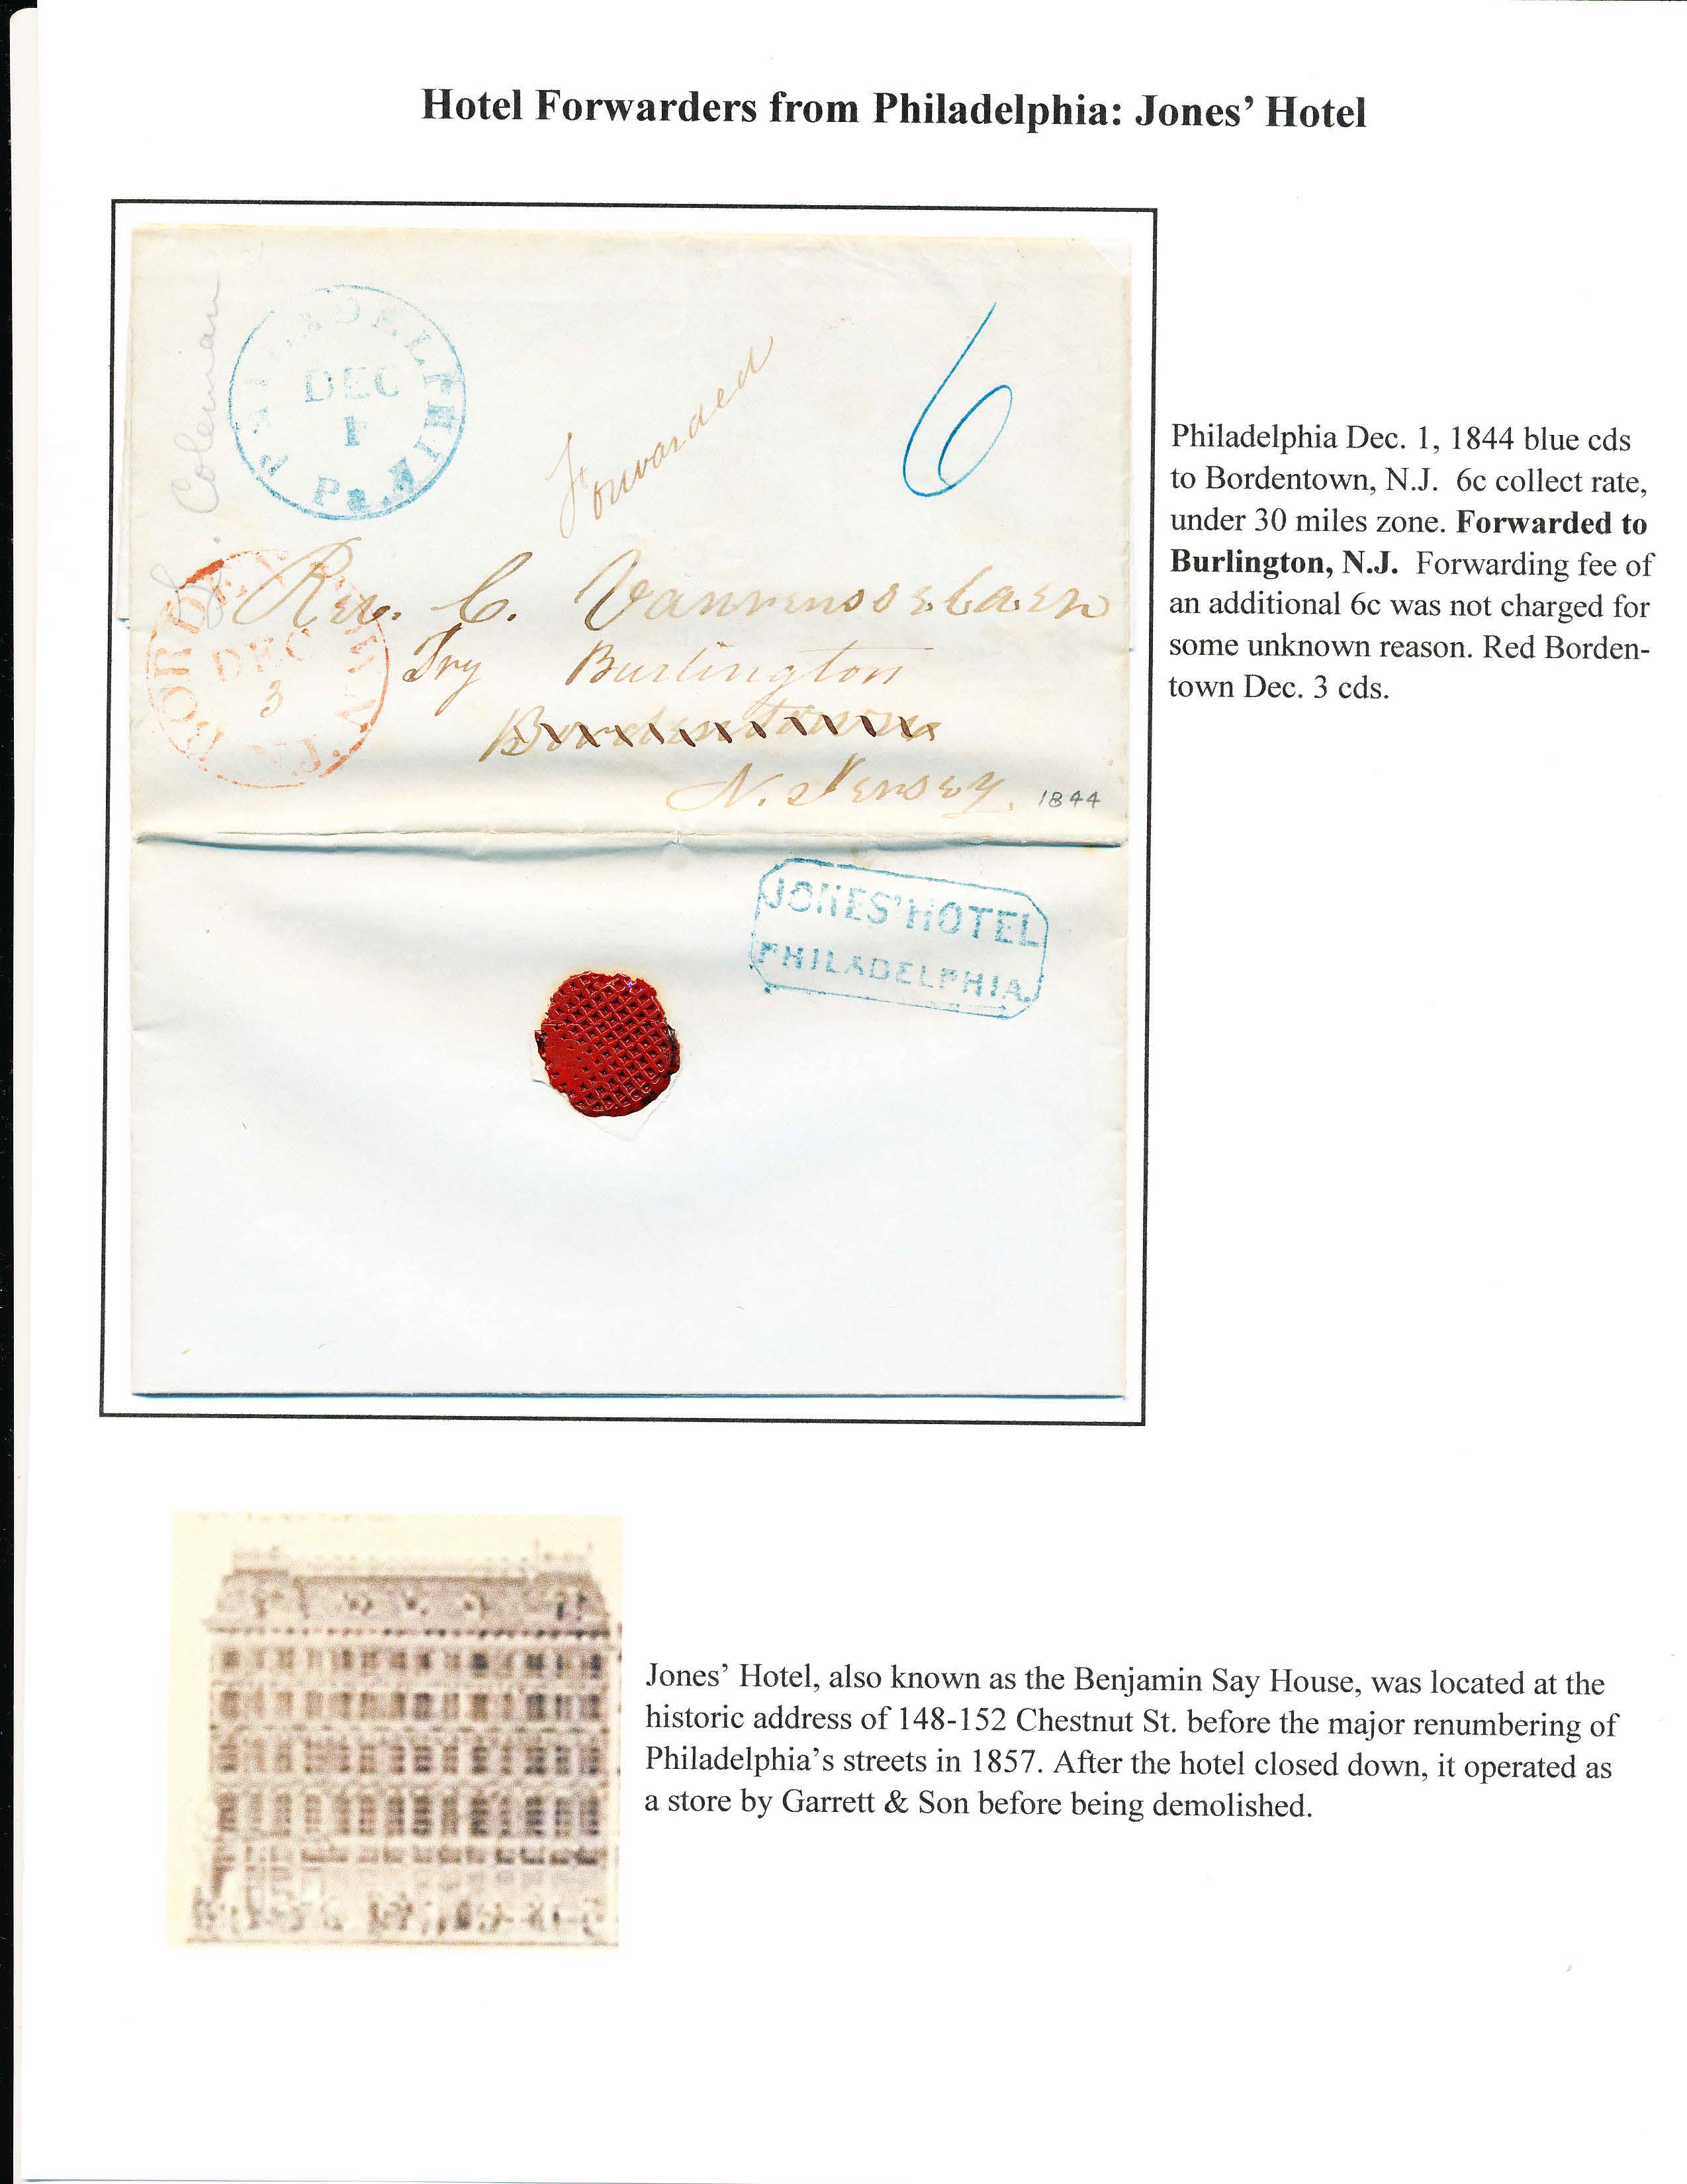 Hotel Forwarders from Philadelphia: Jones’ Hotel
Coleman
PHILADELPHIA Pa.
DEC
1
Forwarded
6
Rev. C. Vanrensselaer
Try Burlington
Bordentown
N. Jersey.
1844
BORDENTOWN N.J.
DEC
3
JONES' HOTEL
PHILADELPHIA.
Philadelphia Dec. 1, 1844 blue cds
to Bordentown, N.J. 6c collect rate,
under 30 miles zone. Forwarded to
Burlington, N.J. Forwarding fee of
an additional 6c was not charged for
some unknown reason. Red Borden-
town Dec. 3 cds.
Jones’ Hotel, also known as the Benjamin Say House, was located at the
historic address of 148-152 Chestnut St. before the major renumbering of
Philadelphia’s streets in 1857. After the hotel closed down, it operated as
a store by Garrett & Son before being demolished.